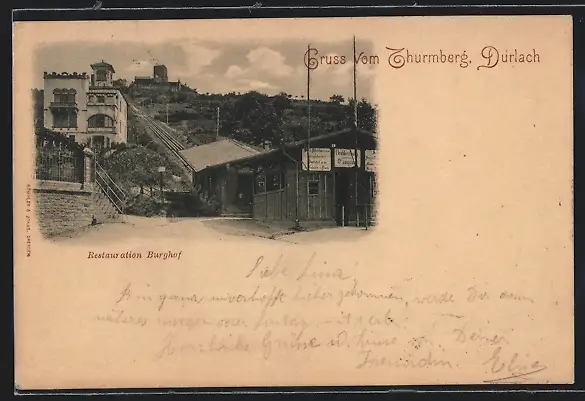 Gruss vom Thurmberg, Durlach
Restauration Burghof
Liebe Lina!
Bin ganz unverhofft hierher gekommen, werde Dir dann
näheres morgen oder Sonntag mitteilen.
Herzliche Grüße u. Küsse von Deiner
Freundin Elise